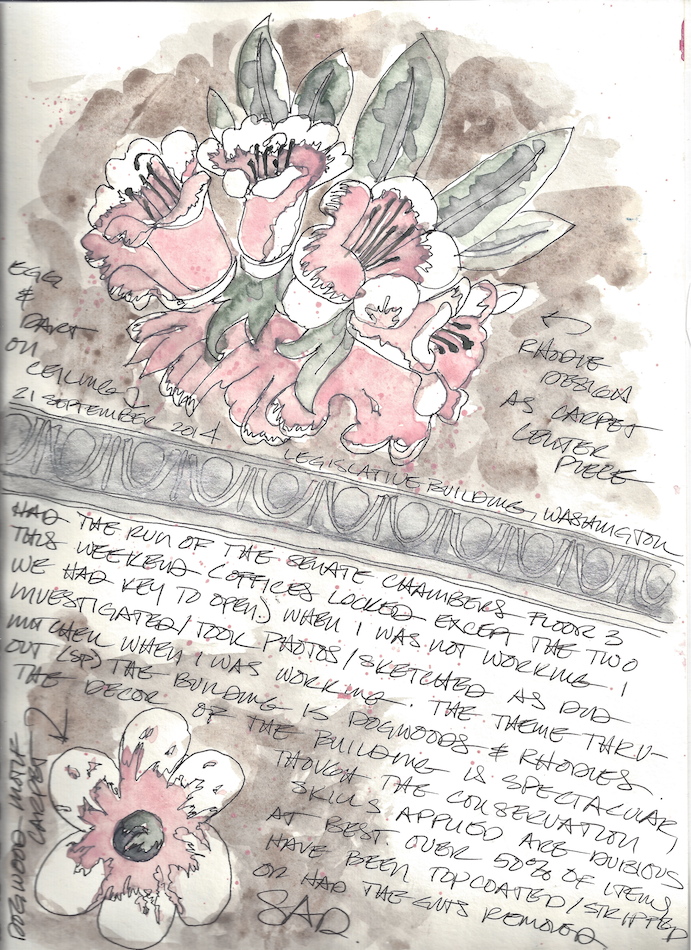 EGG
&
DART
ON
CEILING
RHODIE
DESIGN
AS CARPET
CENTER
PIECE
21 SEPTEMBER 2014
LEGISLATIVE BUILDING, WASHINGTON
HAD THE RUN OF THE SENATE CHAMBERS FLOOR 3
THIS WEEKEND (OFFICES LOCKED EXCEPT THE TWO
WE HAD KEY TO OPEN.) WHEN I WAS NOT WORKING I
INVESTIGATED/TOOK PHOTOS/SKETCHED AS DID
MITCHELL WHEN I WAS WORKING. THE THEME THRU-
OUT (SP) THE BUILDING IS DOGWOODS & RHODIES.
THE DECOR OF THE BUILDING IS SPECTACULAR,
THOUGH THE CONSERVATION
SKILLS APPLIED ARE DUBIOUS
AT BEST. OVER 50% OF ITEMS
HAVE BEEN TOPCOATED/STRIPPED
OR HAD THE GUTS REMOVED
SAD
DOGWOOD MOTIF
CARPET